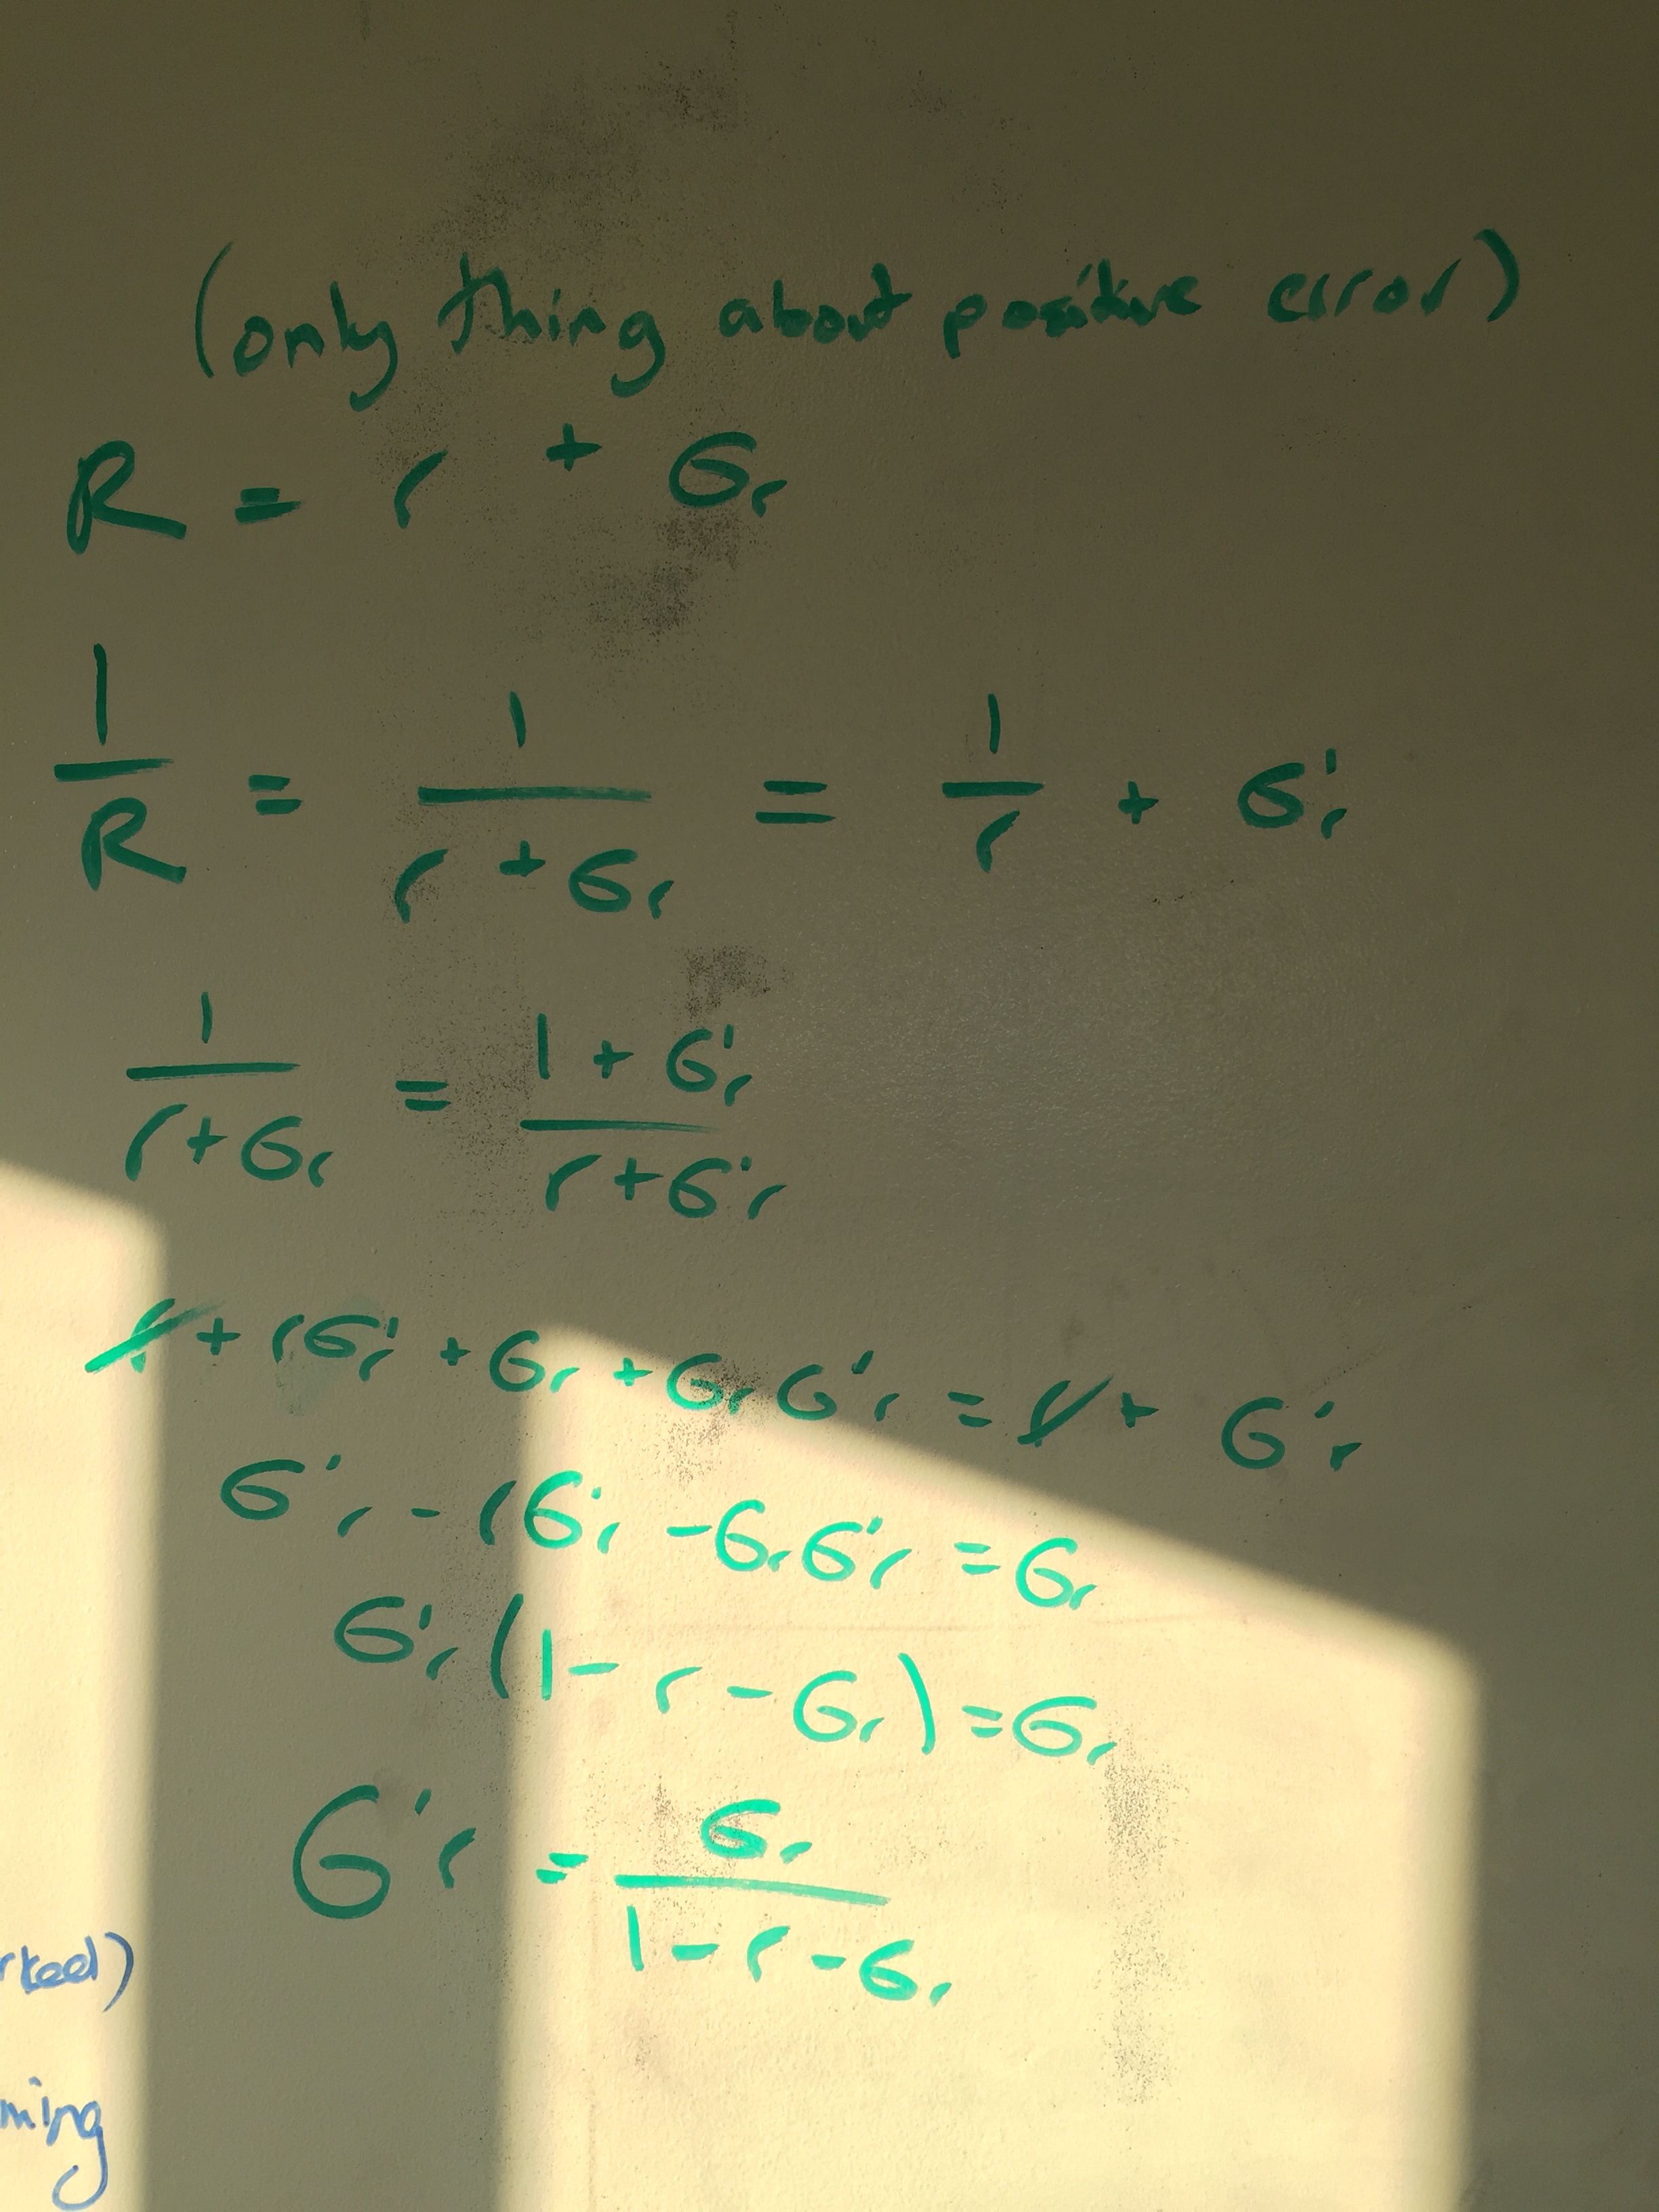 (only thing about positive error)
R = r + σr
1/R = 1/(r + σr) = 1/r + σ'r
1/(r+σr) = (1 + σ'r)/(r+σ'r)
r + rσ'r + σr + σrσ'r = r + σ'r
σ'r - rσ'r - σrσ'r = σr
σ'r(1 - r - σr) = σr
σ'r = σr/(1 - r - σr)
rked)
ming